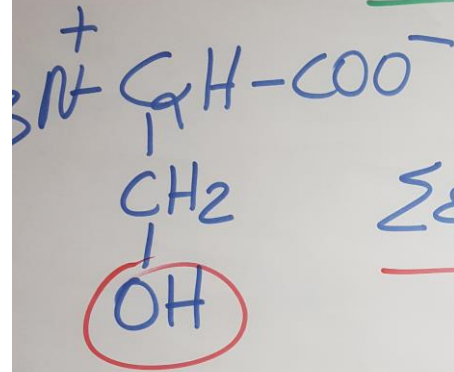 +
3N-CαH-COO⁻
CH2
OH
Σε